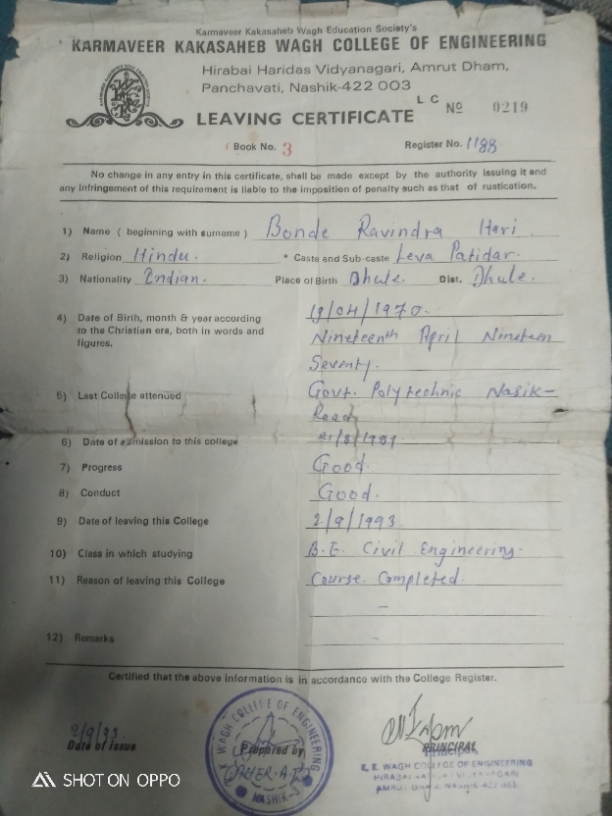 Karmaveer Kakasaheb Wagh Education Society's
KARMAVEER KAKASAHEB WAGH COLLEGE OF ENGINEERING
Hirabai Haridas Vidyanagari, Amrut Dham,
Panchavati, Nashik-422 003
LEAVING CERTIFICATE L C No 0219
Book No. 3 Register No. 1188
No change in any entry in this certificate, shall be made except by the authority issuing it and
any infringement of this requirement is liable to the imposition of penalty such as that of rustication.
1) Name ( beginning with surname ) Bonde Ravindra Hari
2) Religion Hindu. * Caste and Sub-caste Leva Patidar.
3) Nationality Indian. Place of Birth Dhule. Dist. Dhule.
4) Date of Birth, month & year according 19/04/1970.
to the Christian era, both in words and Nineteenth April Nineteen
figures. Seventy.
5) Last College attended Govt. Polytechnic Nasik-
Road
6) Date of admission to this college /8/1989
7) Progress Good.
8) Conduct Good.
9) Date of leaving this College 2/9/1993
10) Class in which studying B.E. Civil Engineering.
11) Reason of leaving this College Course Completed
-
12) Remarks -
Certified that the above information is in accordance with the College Register.
2/9/93
Date of issue Prepared by PRINCIPAL
K. K. WAGH COLLEGE OF ENGINEERING
K WAGH COLLEGE OF ENGINEERING
NASHIK-3
SHOT ON OPPO